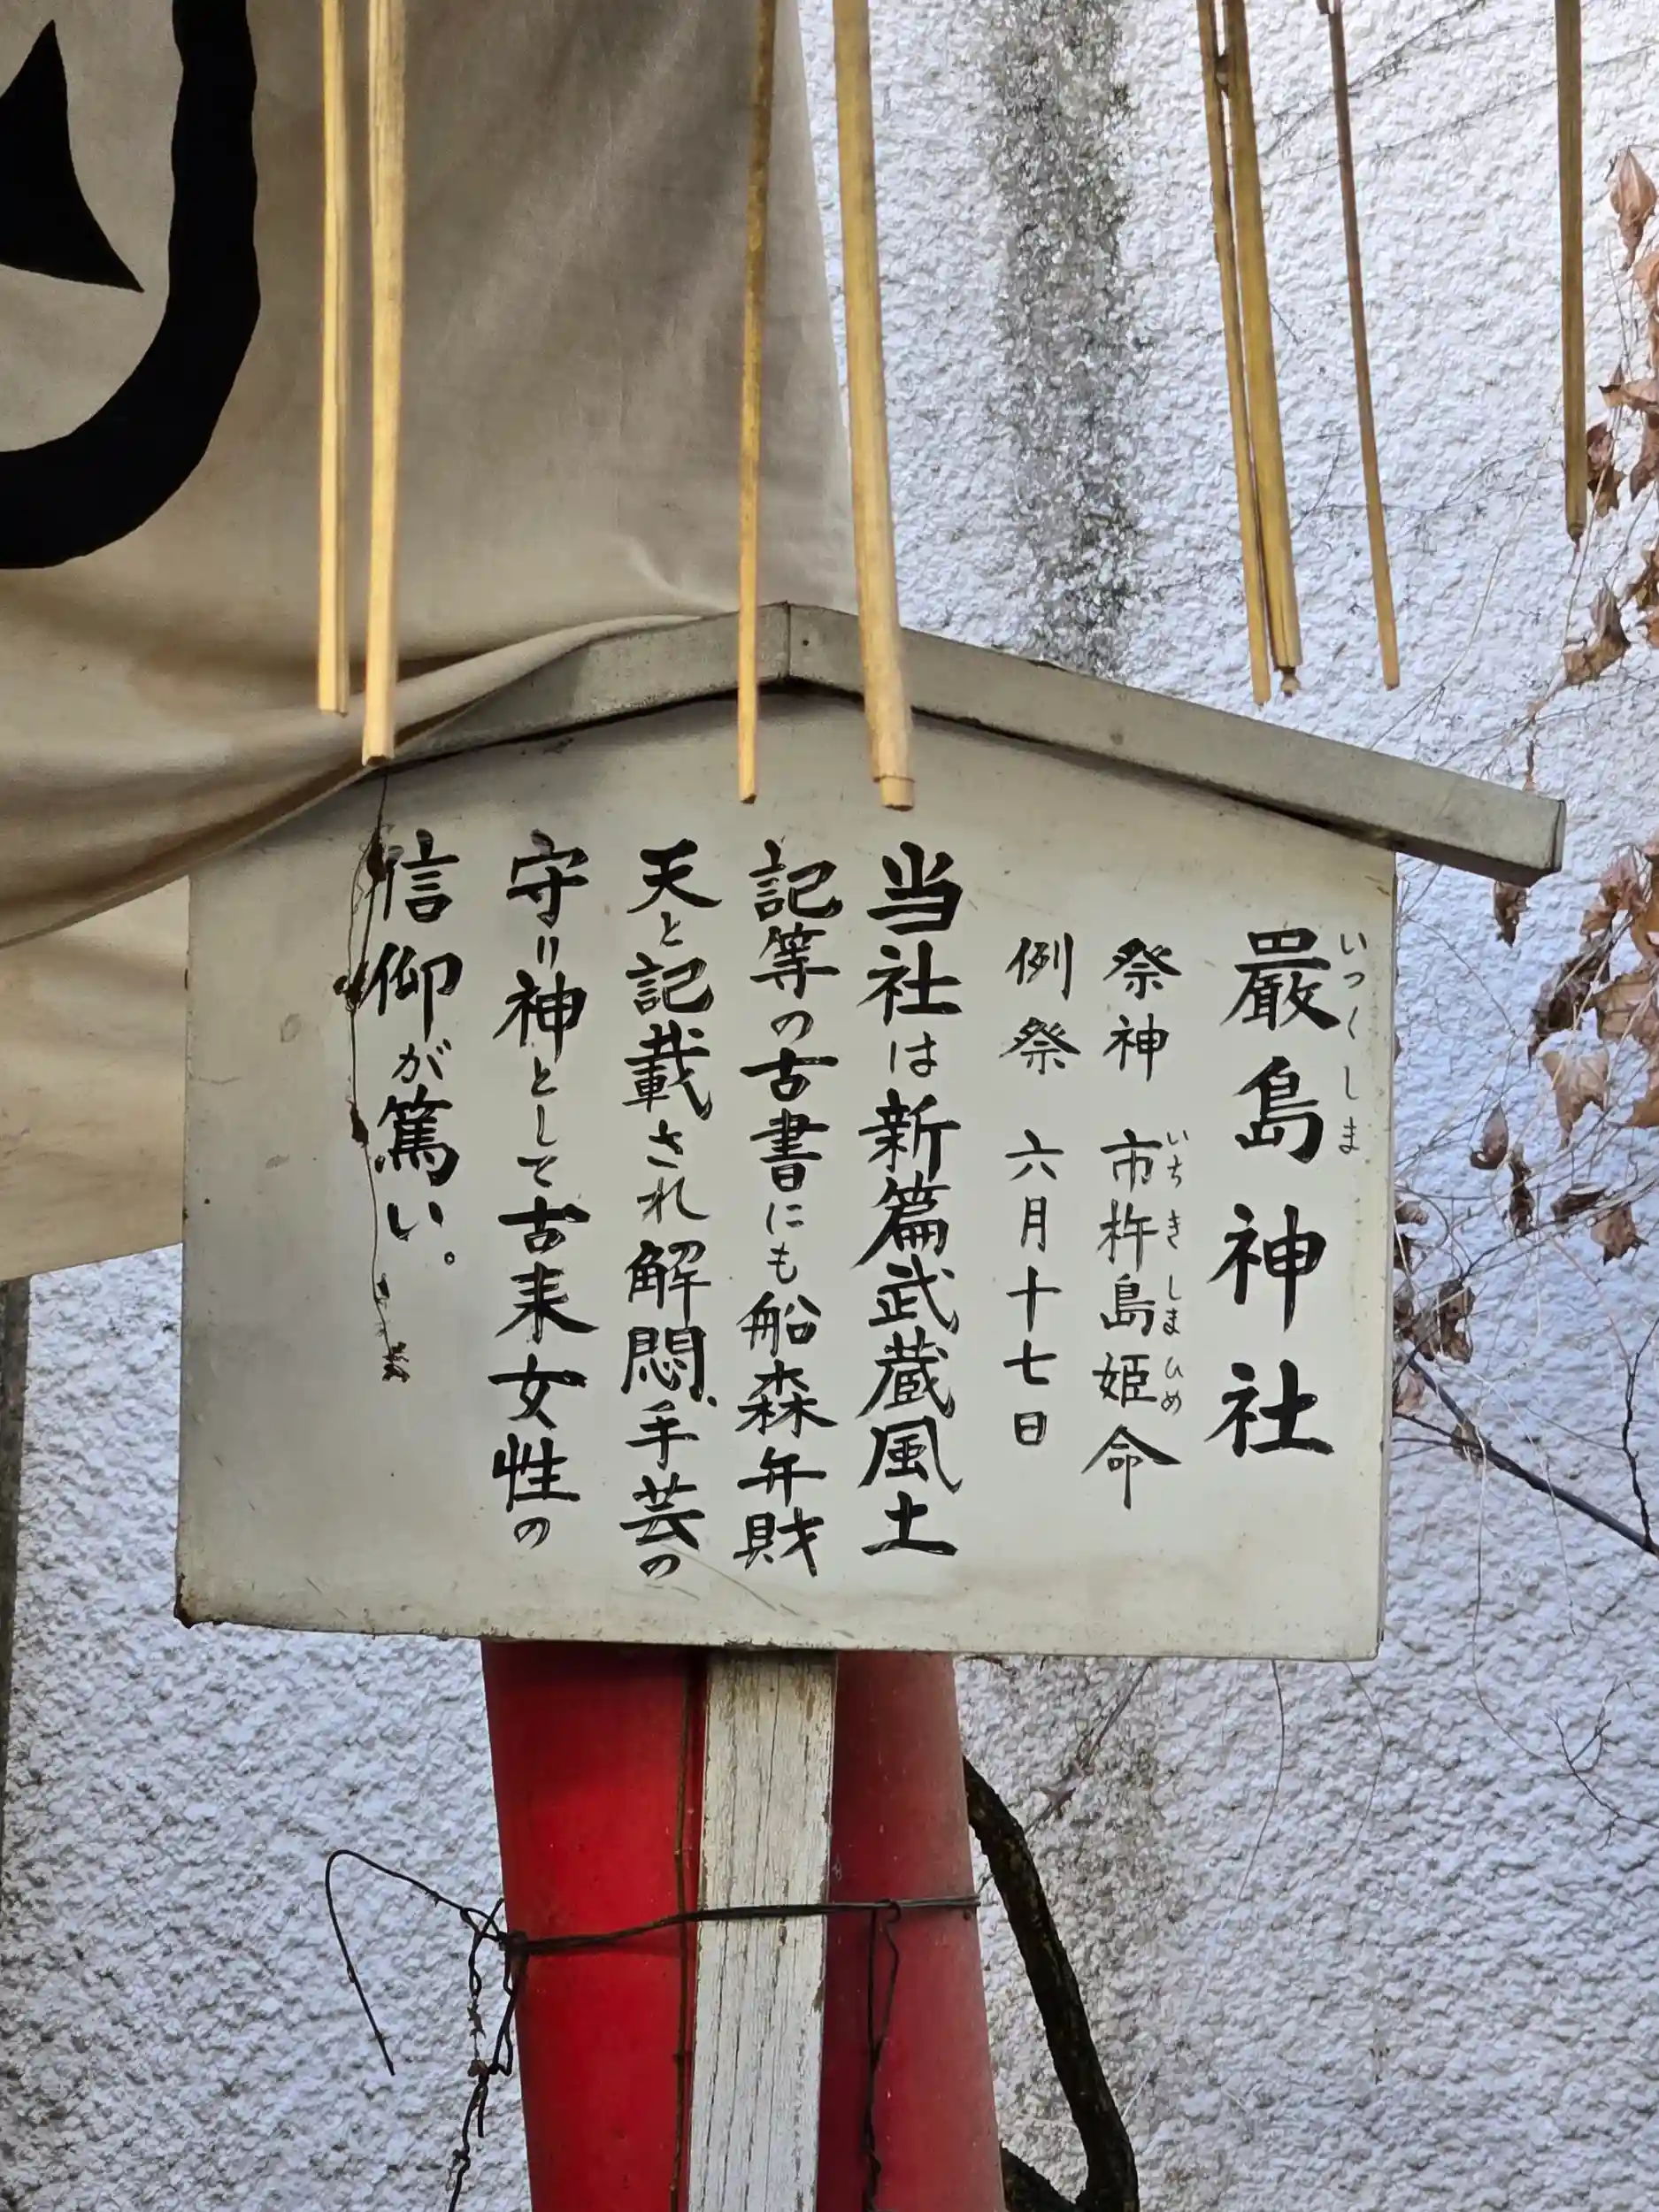 厳島神社
いつくしま
祭神 市杵島姫命
いちきしまひめ
例祭 六月十七日
当社は新篇武蔵風土
記等の古書にも船森弁財
天と記載され解悶、手芸の
守り神として古来女性の
信仰が篤い。